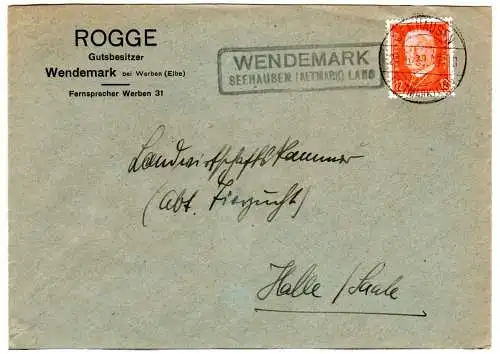 ROGGE
Gutsbesitzer
Wendemark bei Werben (Elbe)
Fernsprecher Werben 31
WENDEMARK
SEEHAUSEN (ALTMARK) LAND
Landwirtschaftskammer
(Abt. Tierzucht)
Halle / Saale